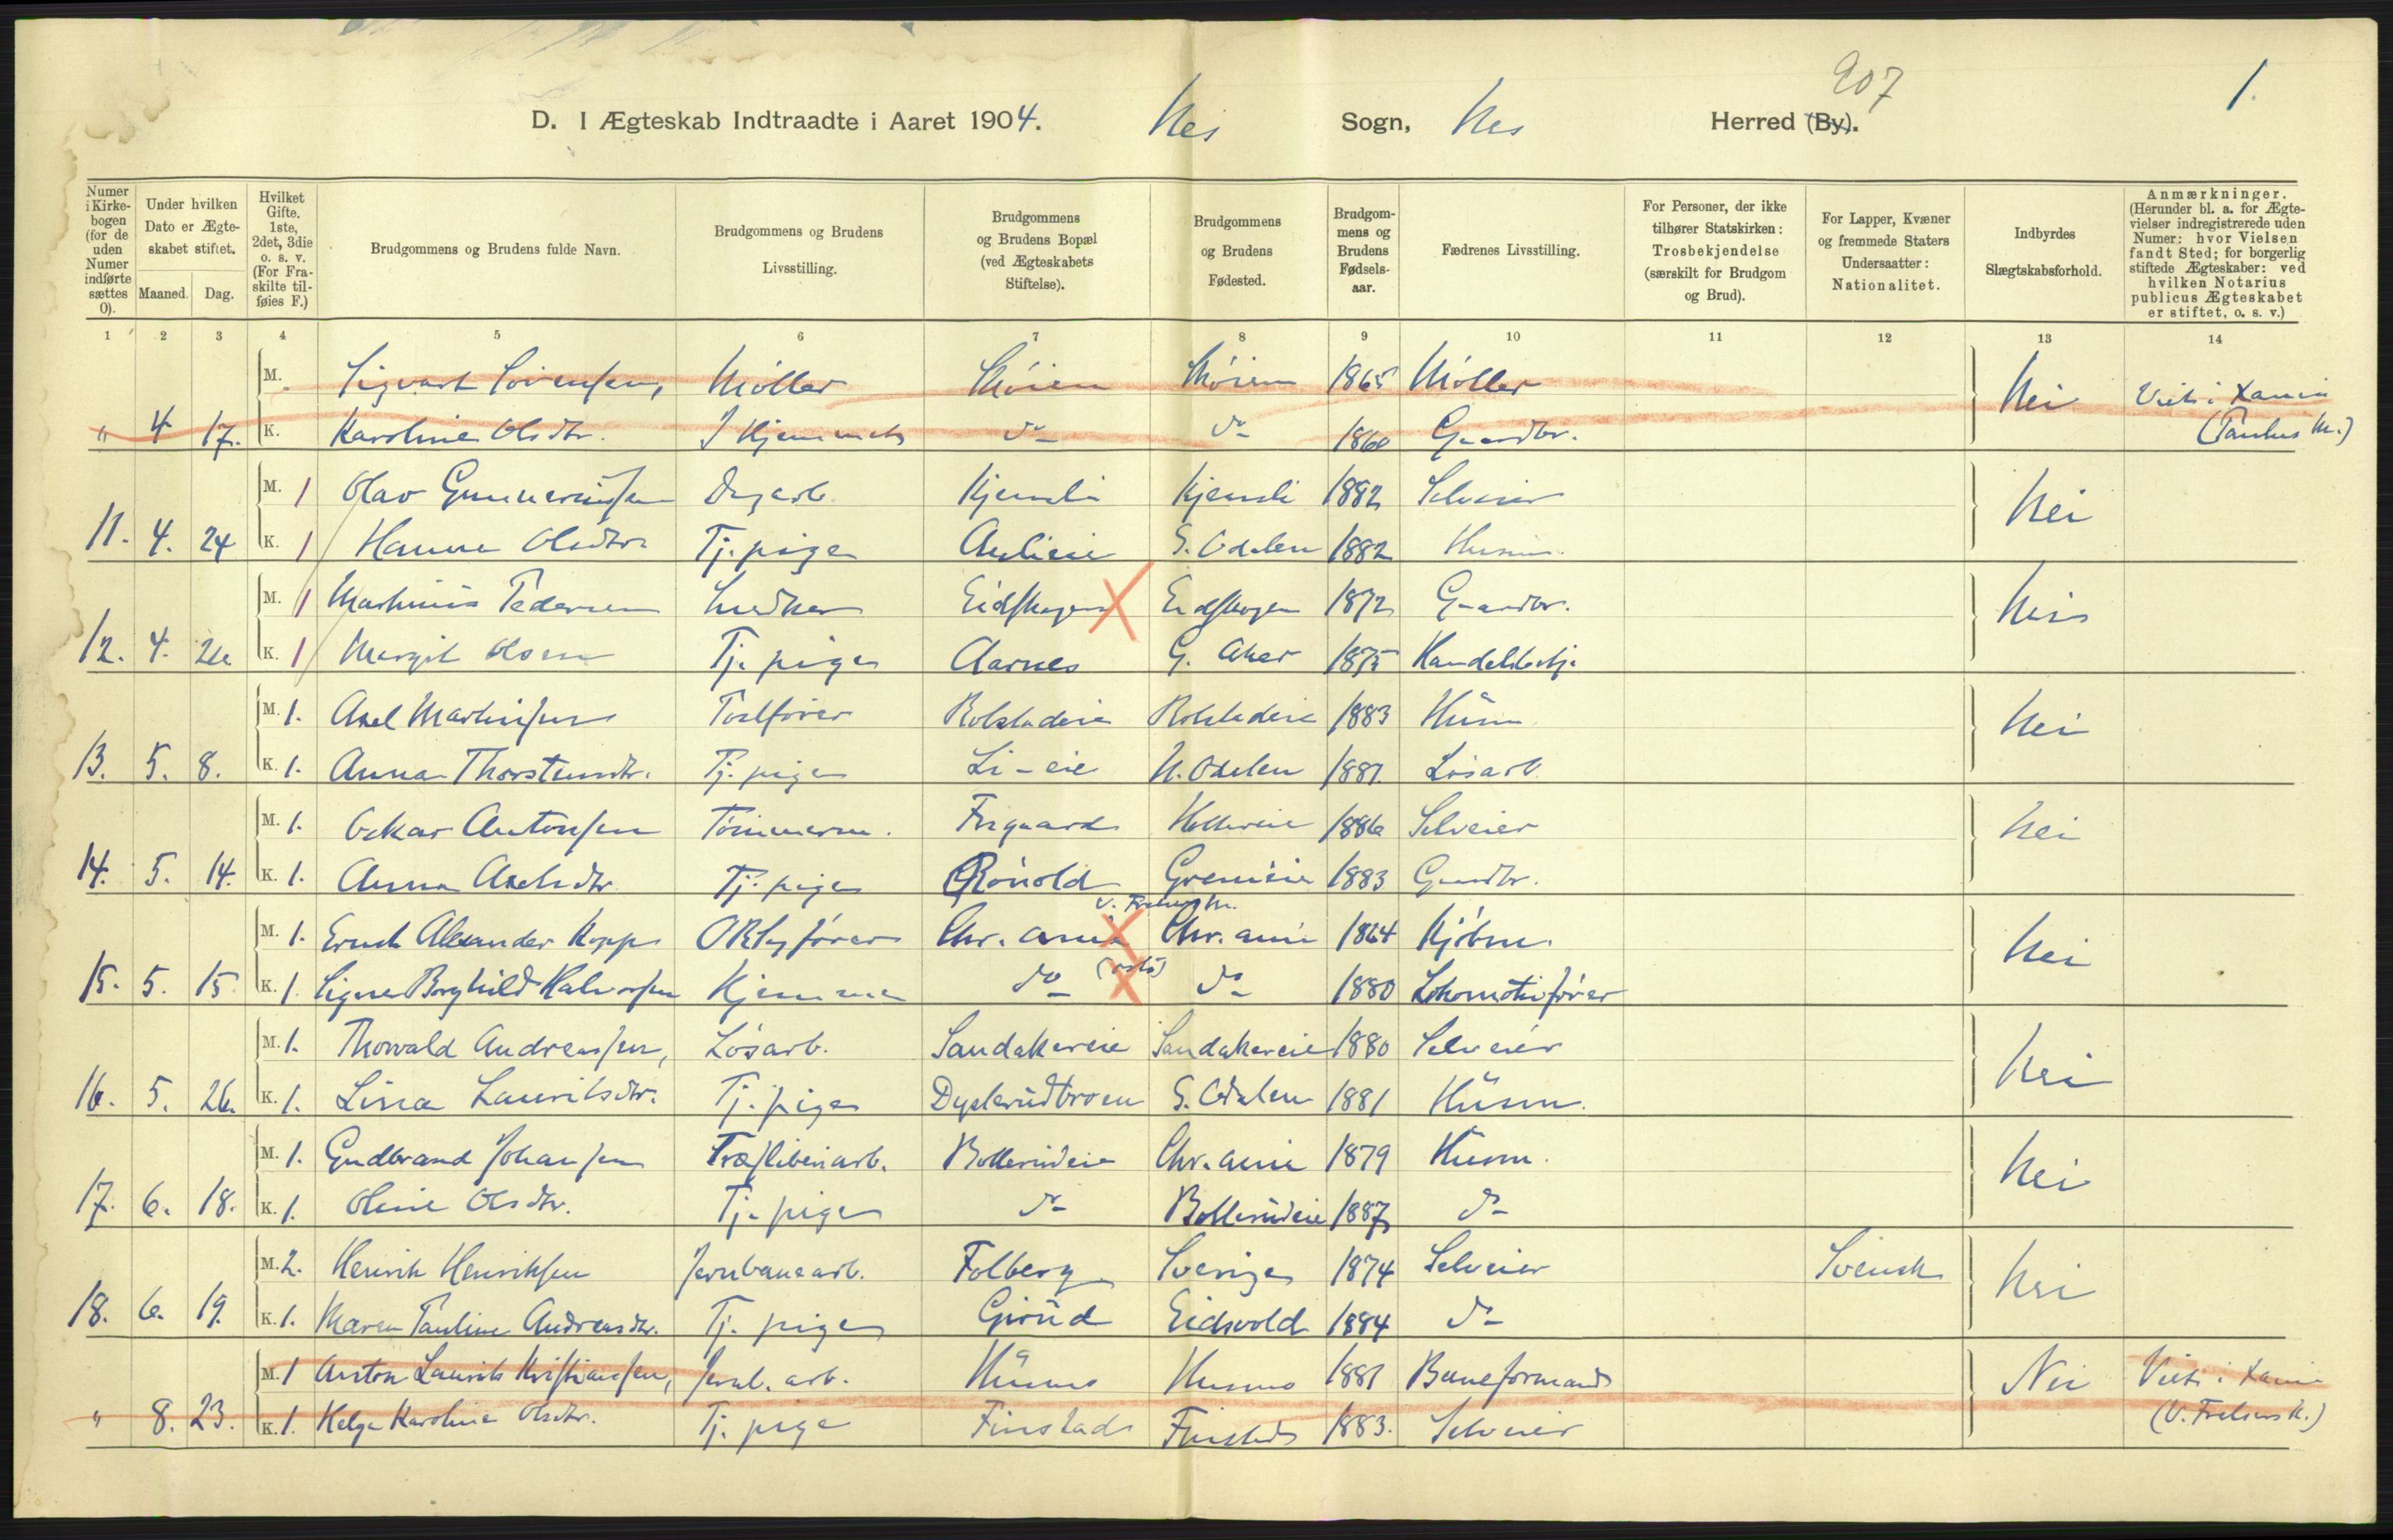 207
1.
D. I Ægteskab Indtraadte i Aaret 1904. Nes Sogn, Nes Herred (By).
Numer i Kirke-bogen (for de uden Numer indførte sættes 0).
Under hvilken Dato er Ægte-skabet stiftet.
Maaned. Dag.
Hvilket Gifte. 1ste, 2det, 3die o. s. v. (For Fra-skilte til-føies F.)
Brudgommens og Brudens fulde Navn.
Brudgommens og Brudens Livsstilling.
Brudgommens og Brudens Bopæl (ved Ægteskabets Stiftelse).
Brudgommens og Brudens Fødested.
Brudgom-mens og Brudens Fødsels-aar.
Fædrenes Livsstilling.
For Personer, der ikke tilhører Statskirken: Trosbekjendelse (særskilt for Brudgom og Brud).
For Lapper, Kvæner og fremmede Staters Undersaatter: Nationalitet.
Indbyrdes Slægtskabsforhold.
Anmærkninger. (Herunder bl. a. for Ægte-vielser indregistrerede uden Numer: hvor Vielsen fandt Sted; for borgerlig stiftede Ægteskaber: ved hvilken Notarius publicus Ægteskabet er stiftet, o. s. v.)
1 2 3 4 5 6 7 8 9 10 11 12 13 14
M. Sigvart Sörensen, Möller 1865 Möller Nei
" 4 17. K. Karoline Olsdtr. do do 1860 Gaardbr. (Paulus M.)
M. 1 Olav Gunneriussen Dagarb. Kjemsli Kjemsli 1882 Selveier Nei
11. 4. 24 K. 1 Hanna Olsdtr. Tj. pige Aulieie S. Odalen 1882 Husm.
M. 1 Martinius Pedersen Snedker Eidskogen Eidskogen 1872 Gaardbr. Nei
12. 4. 26 K. 1 Margit Olsen Tj. pige Aarnes G. Aker 1875
M. 1. Axel Martinsen Rolstadeie Rolstadeie 1883 Husm Nei
13. 5. 8. K. 1. Anna Thorstensdtr. Tj. pige Li-eie N. Odalen 1881 Lösarb.
M. 1. Oskar Antonsen Tömmerm. 1886 Selveier Nei
14. 5. 14. K. 1. Anna Axelsdtr. Tj. pige Rönold 1883 Gaardbr.
M. 1. Ernst Alexander Kopp Chr. ania Chr. ania 1864 Kjöbm. Nei
15. 5. 15 K. 1. Signe Borghild Halvorsen Hjemme do (Oslo) do 1880 Lokomotivförer
M. 1. Thorvald Andreassen, Lösarb. Sandakereie Sandakereie 1880 Selveier Nei
16. 5. 26. K. 1. Lina Lauritsdtr. Tj. pige Dysterudbroen S. Odalen 1881 Husm.
M. 1. Gudbrand Johansen Træsliberiarb. Bollerudeie Chr. ania 1879 Husm. Nei
17. 6. 18. K. 1. Oline Olsdtr. Tj. pige do Bollerudeie 1887 do
M. 2. Henrik Henriksen Jernbanearb. Folberg Sverige 1874 Selveier Svensk Nei
18. 6. 19. K. 1. Maren Pauline Andreasdtr. Tj. pige Eidsvold 1884 do
M. 1 Anton Laurits Kristiansen, Jernb. arb. Husmo Husmo 1881 Baneformand Nei
" 8. 23. K. 1. Helga Karoline Olsdtr. Tj. pige Finstad Finstad 1883. Selveier (V. Frelsers K.)